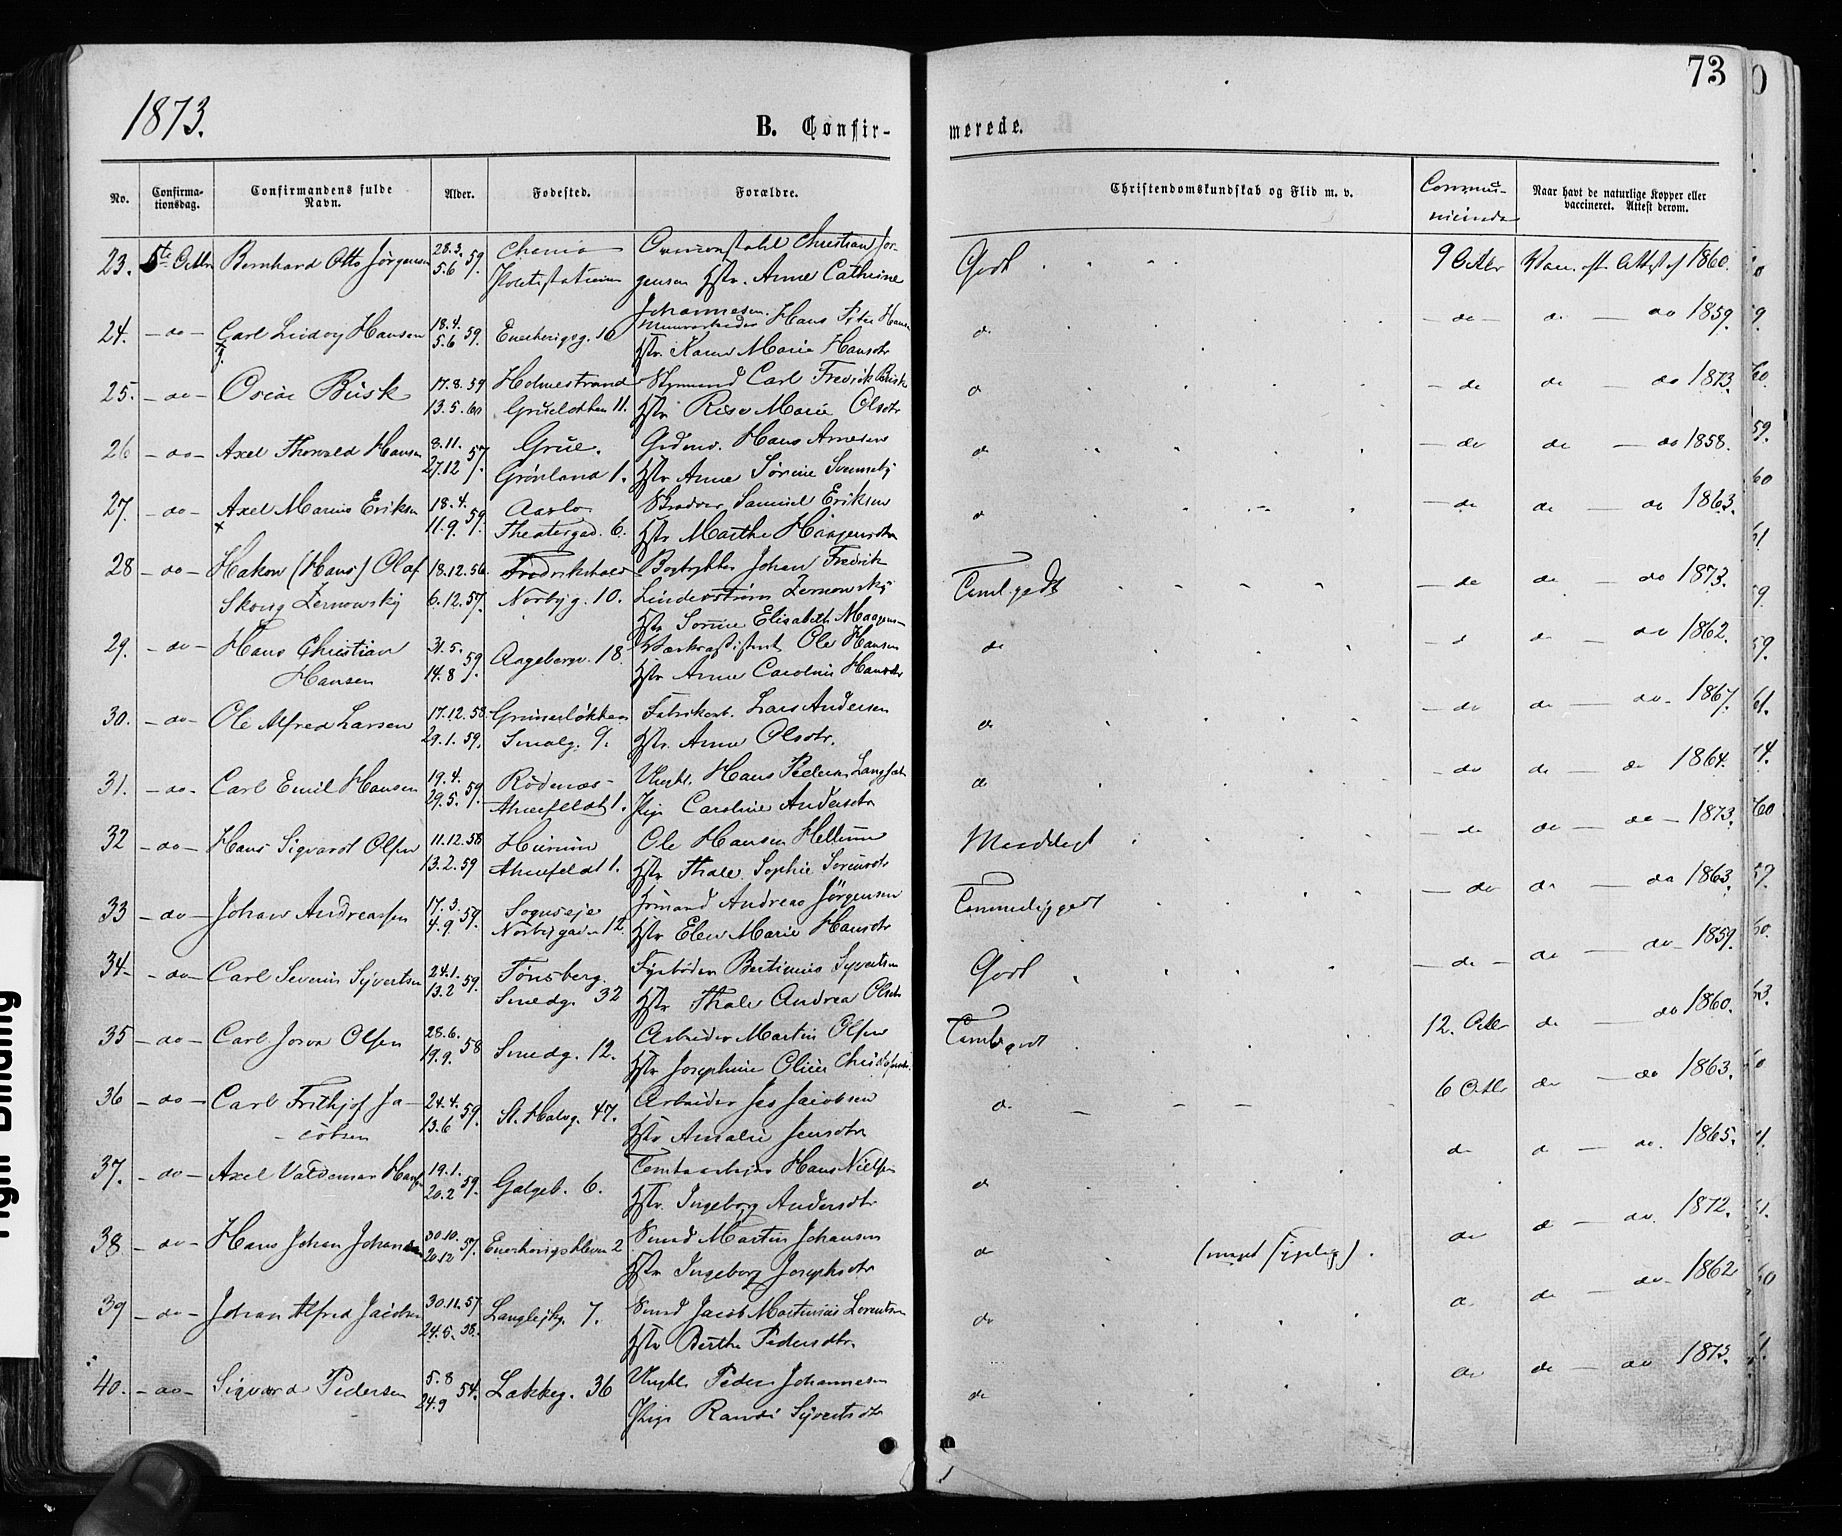 1873.
73
B. Confir-
merede.
No.
Confirma-
tionsdag.
Confirmandens fulde
Navn.
Alder.
Fødested.
Forældre.
Christendomskundskab og Flid m. v.
Commu-
Naar havt de naturlige Kopper eller
vaccineret. Attest derom.
23. 5te Octbr Bernhard Otto Jørgensen 28.3. 5.6 59. Chania Christian Jør-
gensen Hstr. Anne Cathrine
Johannesen.
Godt 9 Octbr Vac. Attest af 1860.
24. - do - Carl Ludvig Hansen 18.4. 5.6 59. Enerhaugsg. 10 Hans Peter Hansen
Hstr. Karen Marie Hansdtr
d. - do - d. - do 1859.
25. - do - Oscar Busk 17.8.59 Holmestrand Styrmand Carl Fredrik Busk
13.5.60 Grünerløkken 11. Hstr. Marie Olsdtr
d - do do - do 1873.
26 - do - Axel Thorvald Hansen 8.11. 27.12 57. Grue. Gdmd. Hans Arnesen
Grønland 1. Hstr. Anne Sørine
d. - do do - do 1858.
27. - do - Axel Marius Eriksen 18.4. 11.9. 59. Aaslo Samuel Eriksen
Theatergad. 6. Hstr. Marthe Haagensdtr
d - do do - do 1863.
28 - do - Hakon (Hans) Olaf 18.12.56. Fredrikshald Bogtrykker Johan Fredrik
Skoug Zernowsky 6.12.57. Norbyg. 10. Linderstrøm Zernowsky
Hstr. Elisabeth
Temligodt - do do - do 1873.
29. - do - Hans Christian 31.5. 14.8 59. Aagebergv. 18. Ole Hansen
Hansen Hstr. Anne Caroline Hansdtr
do - d do - do 1862.
30. - do - Ole Alfred Larsen 17.12.58 Grünerløkken Fabrikarb. Lars Andersen
29.1.59. Smalg. 9. Hstr. Anne Olsdtr.
do - do do - do. 1867.
31. - do - Carl Emil Hansen 19.4. 29.5. 59. Rødenæs Ungkl. Hans Pedersen
Ahnefeldt 1. Pige Caroline Andersdtr
d - do do - do 1864.
32 - do - Hans Sigvardt Olsen 11.12.58 Hurum Ole Hansen Hellum
13.2.59 Ahnefeldt 1. Hstr. Thale Sophie Sørensdtr
Maadeligt - do do - do - 1873.
33 - do - Johan Andreassen 17.3. 4.9. 57. Andreas Jørgensen
Norbygaden 12. Hstr. Elen Marie Hansdtr
Temmeliggodt - do do - do 1863.
34 - do - Carl Severin Syvertsen 24.1. 13.2 59. Tønsberg. Fyrbøder Syvertsen
Smedg. 32 Hstr. Thale Andrea Olsdtr
Godt - do - do - do - 1859.
35 - do - Carl Olsen 28.6. 19.9. 58 Smedg. 12. Arbeider Martin Olsen
Hstr. Josephine
Temligodt 12. Octbr do - do 1860.
36 - do - Carl Frithjof Ja-
cobsen 24.4. 13.6 59. St. Halvg. 47. Arbeider Jacobsen
Hstr. Amalie Jensdtr
d. 6 Octbr do - do 1863.
37. - do - Axel Valdemar Hansen 19.1. 20.2 59. Galgeb. 6. Hans Nielsen
Hstr. Ingeborg Andersdtr
d do d - do. 1865.
38 - do - Hans Johan Johansen 30.10. 20.12 57. Enerhaugskleven 2 Smed Martin Johansen
Hstr. Ingeborg Josephsdtr
d (meget sygelig). do d - do. 1872.
39 - do - Johan Alfred Jacobsen 30.11.57 24.5.58. 7. Smed Jacob Lorentsen
Hstr. Berthe Pedersdtr.
do d. do - do - 1862
40. - do - Sigvard Pedersen 5.8 24.9 54. Lakkeg. 36 Ungkl. Peder Johannesen
Pige Randi Syvertsdtr
do do do - do 1873.
Tight Binding